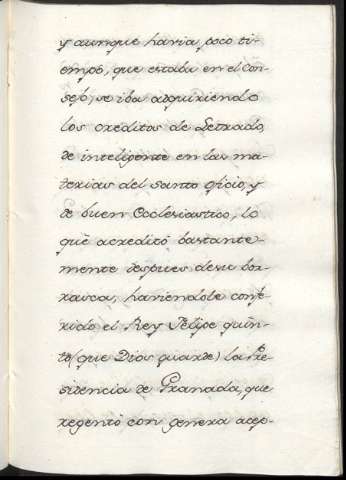 y aunque havia, poco ti-
empo, que estaba en el Con-
sejo, se iba adquiriendo
los creditos de Letrado,
de inteligente en las ma-
terias del Santo oficio, y
de buen Ecclesiastico, lo
que acreditó bastante-
mente despues de su bor-
rasca, haviendole confe-
rido el Rey Felipe quin-
to (que Dios guarde) la Pre-
sidencia de Granada, que
regentó con genera acep-